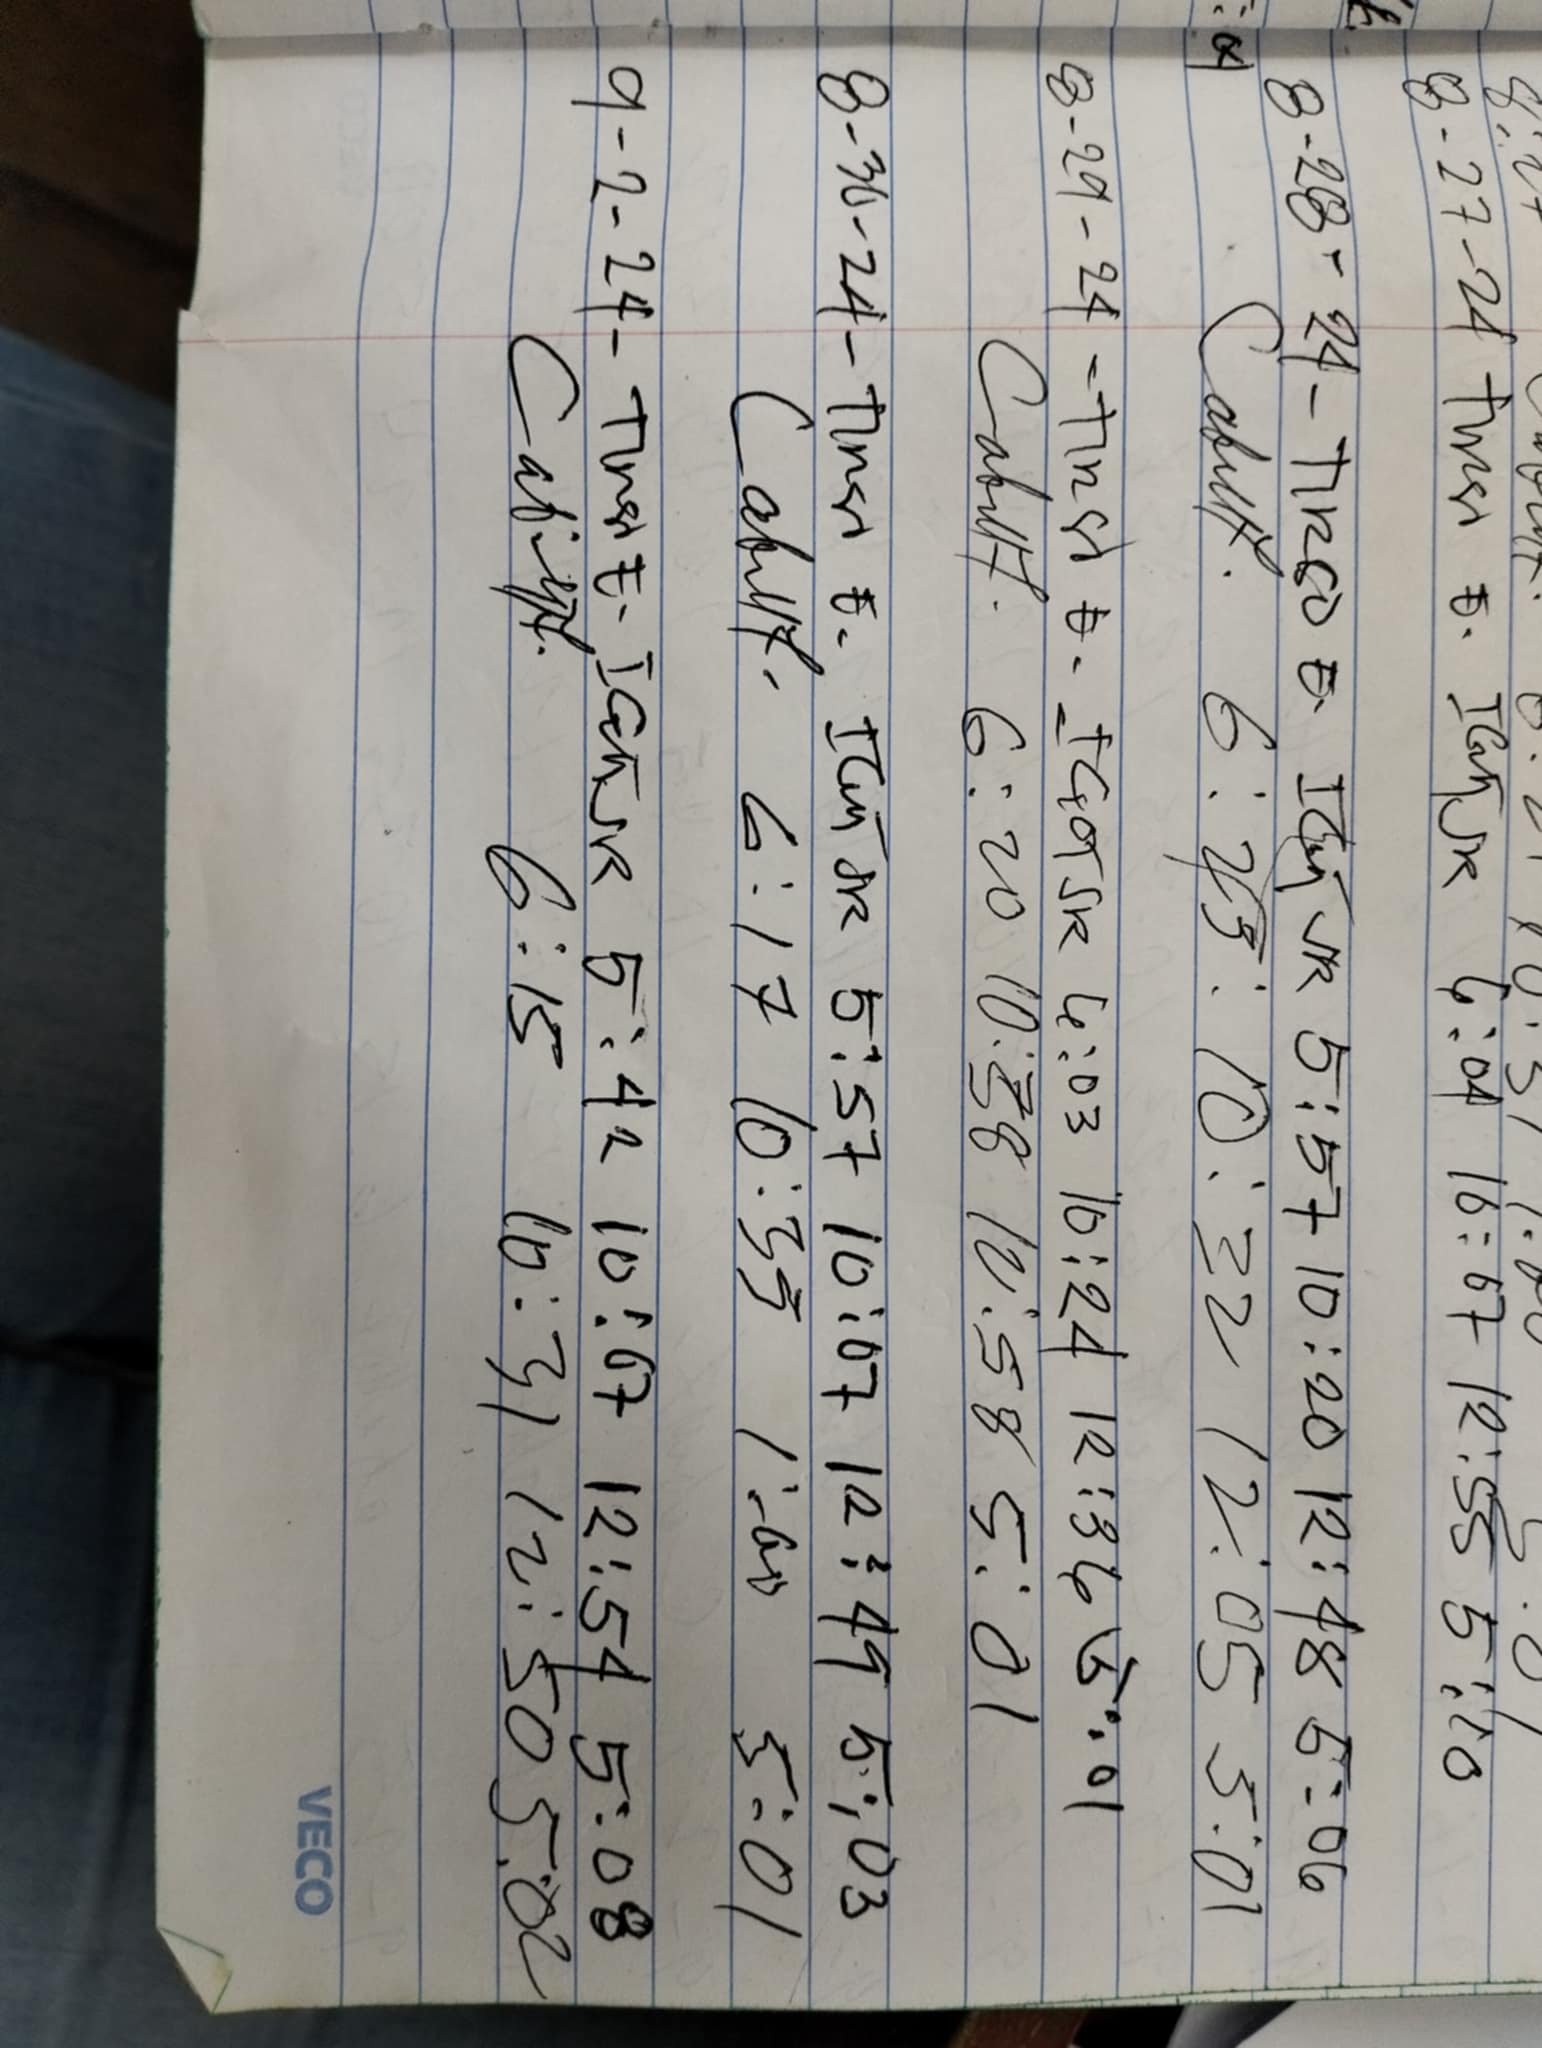 8-27-24 Tirso E. Igot Jr 6:04 10:07 12:55 5:10
8-28-24 - Tirso E. Igot Jr 5:57 10:20 12:48 5:06
Cabult. 6:23: 10:32 12:05 5:01
8-29-24 - Tirso E. Igot Jr 6:03 10:24 12:36 5:01
Cabult. 6:20 10:38 10:58 5:01
8-30-24 - Tirso E. Igot Jr 5:57 10:07 12:49 5:03
Cabult. 6:17 10:33 1:00 5:01
9-2-24 - Tirso E. Igot Jr 5:42 10:07 12:54 5:08
6:15 10:31 12:50 5:02
VECO